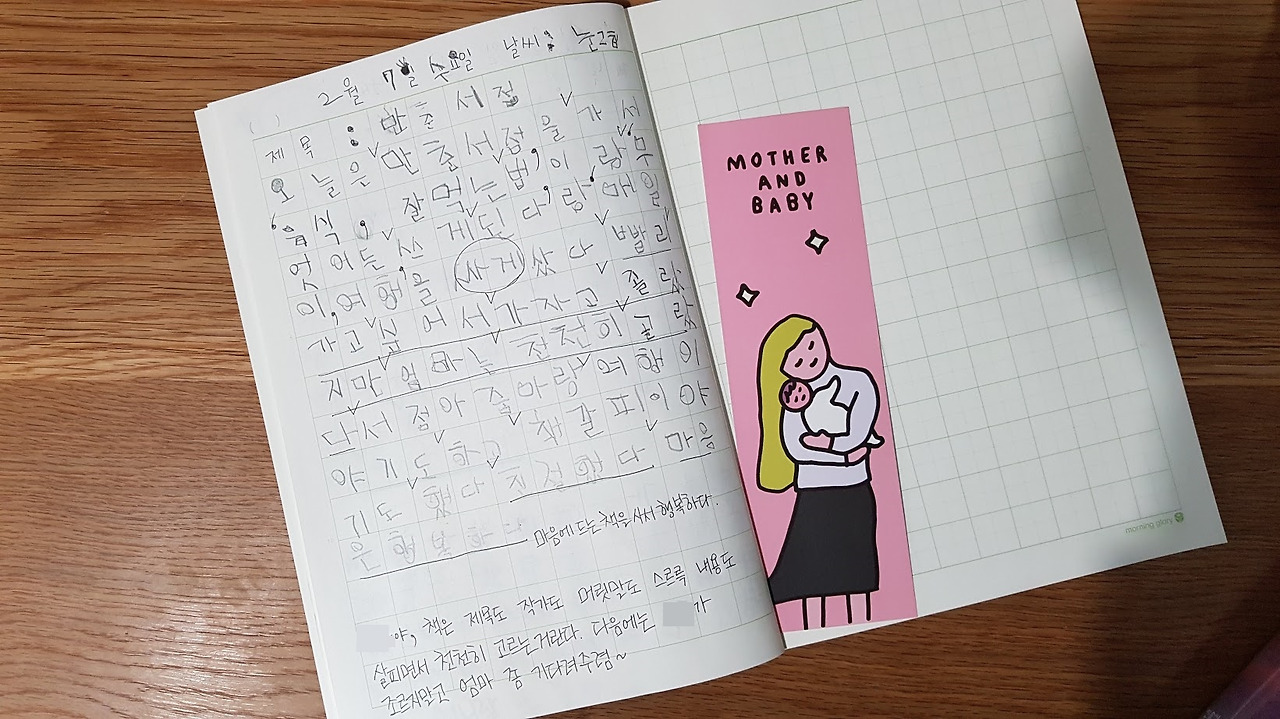 2월 7일 수요일 날씨:
제목: 만춘서점
오늘은 만춘서점을 가서
'음식, 잘먹는법,이랑무
엇이든쓰게된다,랑매일
이,여행을 싸게 샀다 빨리
가고싶어서가자고 졸랐
지만 엄마는 천천히 골랐
다서점아줄마랑여행이
야기도하고 책갈피이야
기도 했다 친절했다 마음
은 행복하다 마음에드는책을사서 행복하다.
야, 책은 제목도 작가도 머릿말도 스르륵 내용도
살피면서 천천히 고르는거란다. 다음에는 가
조르지말고 엄마 좀 기다려주렴~
MOTHER
AND
BABY
morning glory